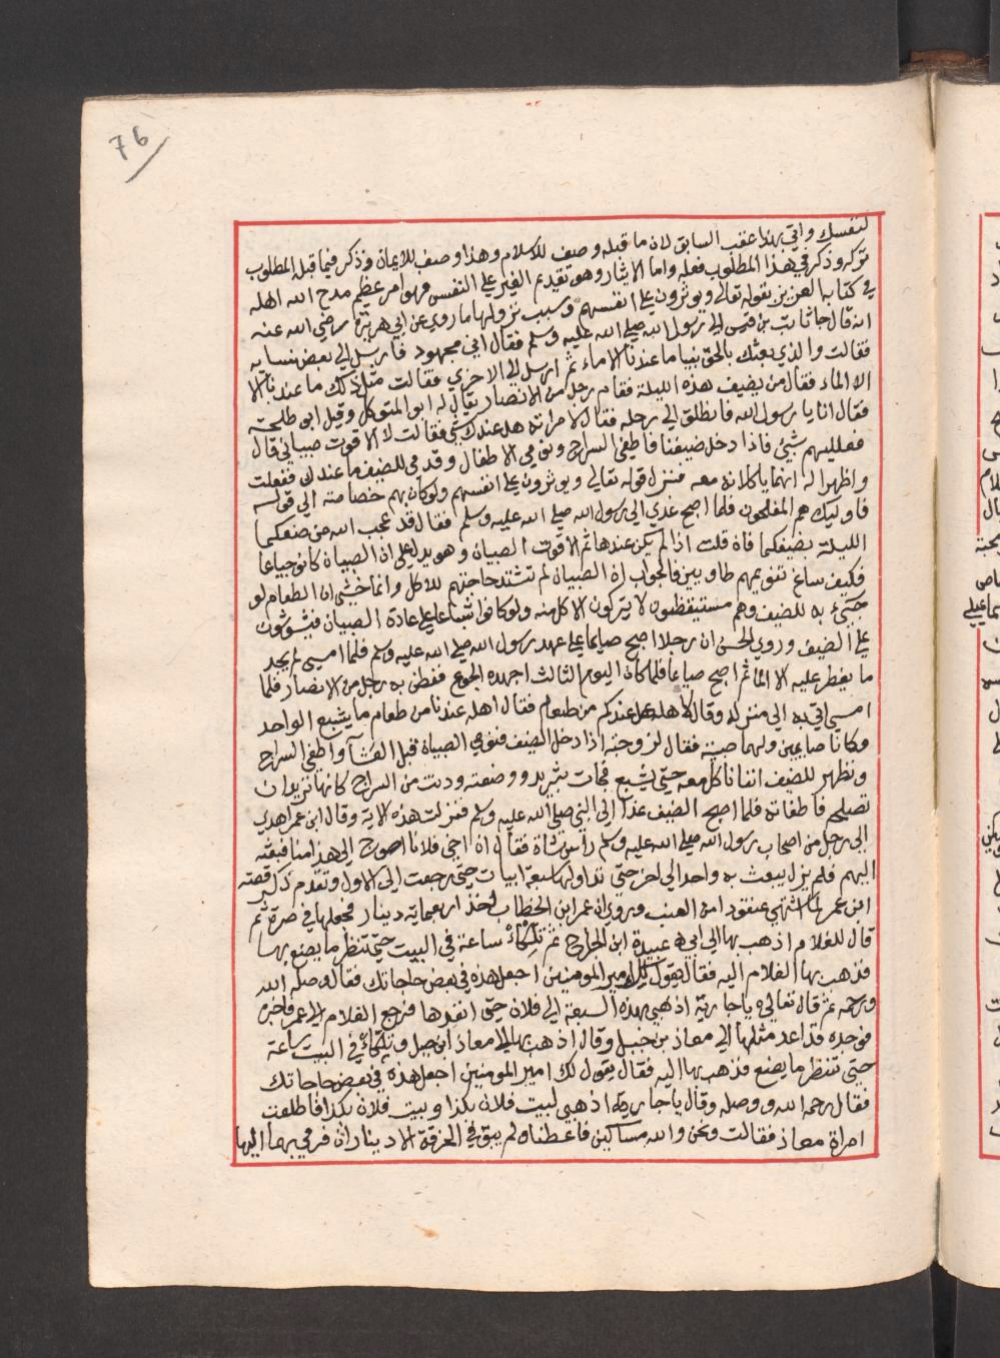 76
لنفسك واتي بهذا عقب السابق لان ما قبله وصف للاسلام وهذا وصف للايمان وذكر فيما قبله المطلوب
تركه وذكر في هذا المطلوب فعله واما الايثار وهو تقديم الغير على النفس فهو امر عظيم مدح الله اهله
في كتابه العزيز بقوله تعالى ويوثرون على انفسهم وسبب نزولها ما روي عن ابي هريرة رضي الله عنه
انه قال جا ثابت بن قيس الى رسول الله صلى الله عليه وسلم فقال اني مجهود فارسل الى بعض نسايه
فقالت والذي بعثك بالحق نبيا ما عندنا الا ماء ثم ارسل الى الاخري فقالت مثل ذلك ما عندنا الا
الا الماء فقال من يضيف هذه الليلة فقام رجل من الانصار يقال له ابو المتوكل وقيل ابو طلحة
فقال انا يا رسول الله فانطلق الى رحله فقال لامراته هل عندك شي فقالت لا الا قوت صبياني قال
فعلليهم بشيئ فاذا دخل ضيفنا فاطفي السراج ونومي الاطفال وقدمي للضيف ما عندك ففعلت
واظهرا له انهما ياكلان معه فنزل قوله تعالى ويوثرون على انفسهم ولو كان بهم خصاصة الى قوله
فاوليك هم المفلحون فلما اصبح غدي الى رسول الله صلى الله عليه وسلم فقال قد عجب الله من صنعكما
الليلة بضيفكما فان قلت اذا لم يكن عندها ثم الا قوت الصبيان وهو يدل على ان الصبيان كانو جياعا
فكيف ساغ تنويمهم طاويين فالجواب ان الصبيان لم تشتد حاجتهم للاكل وانما خشي ان الطعام لو
جيئ به للضيف وهم مستيقظون لا يتركون الاكل منه ولو كانوا شباعا على عادة الصبيان فيشوشون
على الضيف وروي الحسن ان رجلا اصبح صايما على عهد رسول الله صلى الله عليه وسلم فلما امسي لم يجد
ما يفطر عليه الا الما ثم اصبح صايما فلما كان اليوم الثالث اجهده الجوع ففطن به رجل من الانصار فلما
امسي اتي به الى منزله وقال لاهله هل عندكم من طعام فقال اهله عندنا من طعام ما يشبع الواحد
وكانا صايمين ولهما صبية فقال لزوجته اذا دخل الضيف فنومي الصبيان قبل العشآ واطفي السراج
ونظهر للضيف اننا ناكل معه حتى يشبع فجات بثريد ووضعته ودنت من السراج كانها تريد ان
تصلحه فاطفاته فلما اصبح الضيف غدا الى النبي صلى الله عليه وسلم فنزلت هذه الاية وقال ابن عمر اهدي
الى رجل من اصحاب رسول الله صلى الله عليه وسلم راس شاة فقال ان اخي فلانا احوج الى هذا منا فبعثه
اليهم فلم يزل يبعث به واحد الى اخر حتى تداولها سبعة ابيات حتى رجعت الى الاول وتقدم ذكر قصة
ابن عمر لما اشتهي عنقودا من العنب وروي ان عمر ابن الخطاب اخذ اربعماية دينار فجعلها في صرة ثم
قال للغلام اذهب بها الى ابي عبيدة ابن الجراح ثم تلكاء ساعة في البيت حتى تنظر ما يصنع بها
فذهب بها الغلام اليه فقال يقول لك امير المومنين اجعل هذه في بعض حاجاتك فقال وصله الله
ورحمه ثم قال تعالي يا جارية اذهبي بهذه السبعة الى فلان حتى انفدها فرجع الغلام الى عمر فاخبره
فوجده قد اعد مثلها الى معاذ بن جبل وقال اذهب بها الى معاذ ابن جبل وتلكاء في البيت ساعة
حتى تنظر ما يصنع فذهب بها اليه فقال يقول لك امير المومنين اجعل هذه في بعض حاجاتك
فقال رحمه الله ووصله وقال يا جارية اذهبي لبيت فلان بكذا وبيت فلان بكذا فاطلعت
امراة معاذ فقالت ونحن والله مساكين فاعطنا ولم يبق في الخرقة الا ديناران فرمي بهما اليها